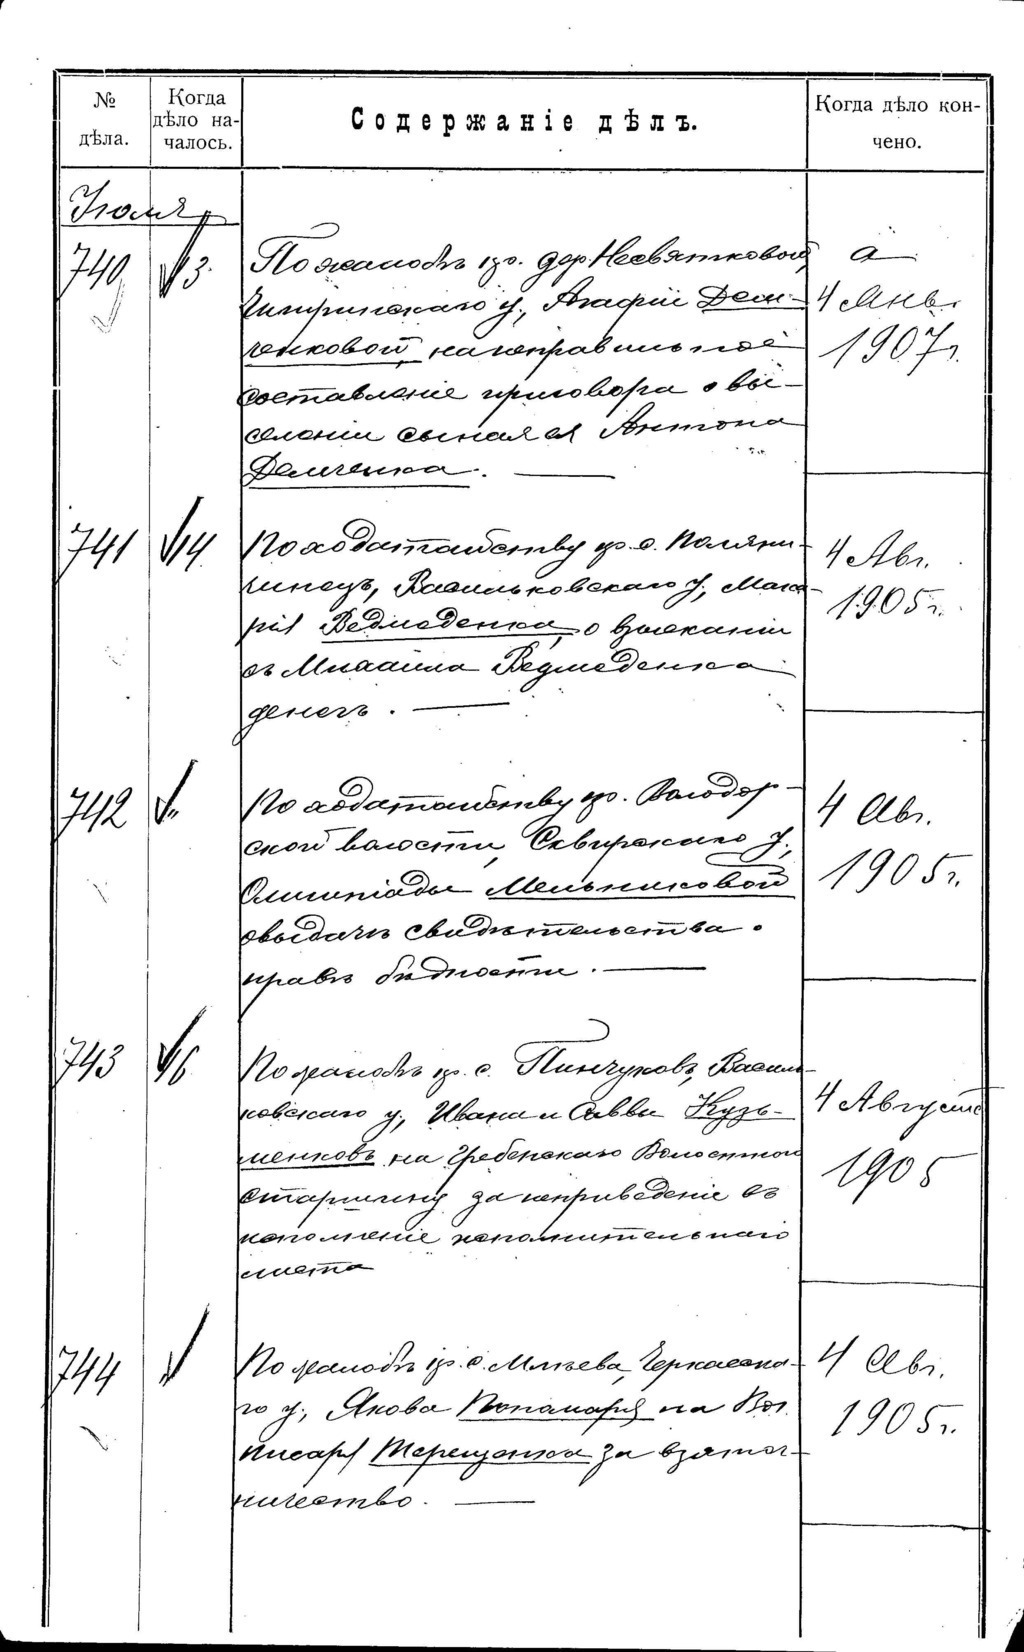 № дѣла.
Когда дѣло на-
чалось.
Содержаніе дѣлъ.
Когда дѣло кон-
чено.
Іюля
740 13. По жалобѣ кр. дер. Несвятковой,
Чигиринскаго у., Агафіи Дем-
ченковой на неправильное
составленіе приговора о вы-
селеніи сына ея Антона
Демченка.
а
4 Янв.
1907 г.
741 14 По ходатайству кр. с. Поляни-
чинецъ, Васильковскаго у., Мака-
рія Ведмеденка, о взысканіи
съ Михаила Ведмеденка
денегъ.
4 Авг.
1905 г.
742 По ходатайству кр. Володар-
ской волости, Сквирскаго у.,
Олимпіады Мельниковой
о выдачѣ свидѣтельства о
правѣ бѣдности.
4 Авг.
1905 г.
743 16 По жалобѣ кр. с. Пинчуковъ, Василь-
ковскаго у., Ивана и Саввы Кузь-
менковъ на Гребенскаго Волостного
старшину за неприведеніе въ
исполненіе исполнительнаго
листа
4 Августа
1905
744 По жалобѣ кр. с. Млѣева, Черкасска-
го у., Якова Пономаря на Вол.
писаря Терещенка за взяточ-
ничество.
4 Авг.
1905 г.